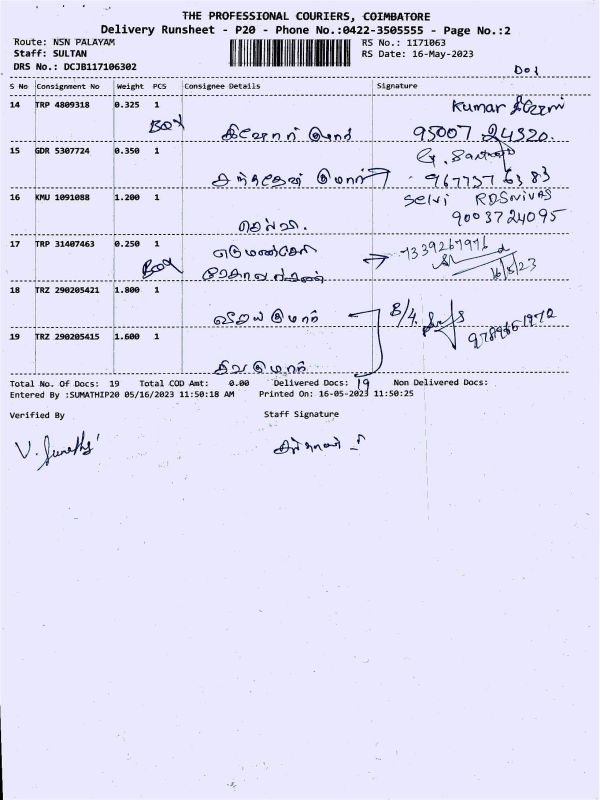 THE PROFESSIONAL COURIERS, COIMBATORE
Delivery Runsheet - P20 - Phone No.:0422-3505555 - Page No.:2
Route: NSN PALAYAM
RS No.: 1171063
Staff: SULTAN
RS Date: 16-May-2023
DRS No.: DCJB117106302
S No Consignment No Weight PCS Consignee Details Signature
14 TRP 4809318 0.325 1 Kumar
BOX 95007 24320
15 GDR 5307724 0.350 1
குமார் 967737 6383
16 KMU 1091088 1.200 1 Selvi RDSnivas
செல்வி. 9003724095
17 TRP 31407463 0.250 1 7339267976
BOX 16/5/23
18 TRZ 290205421 1.800 1 B/4.
விஜய் குமார் 9789661972
19 TRZ 290205415 1.600 1
சிவகுமார்
Total No. Of Docs: 19 Total COD Amt: 0.00 Delivered Docs: 19 Non Delivered Docs:
Entered By :SUMATHIP20 05/16/2023 11:50:18 AM Printed On: 16-05-2023 11:50:25
Verified By Staff Signature
V. Sumathi சுல்தான்